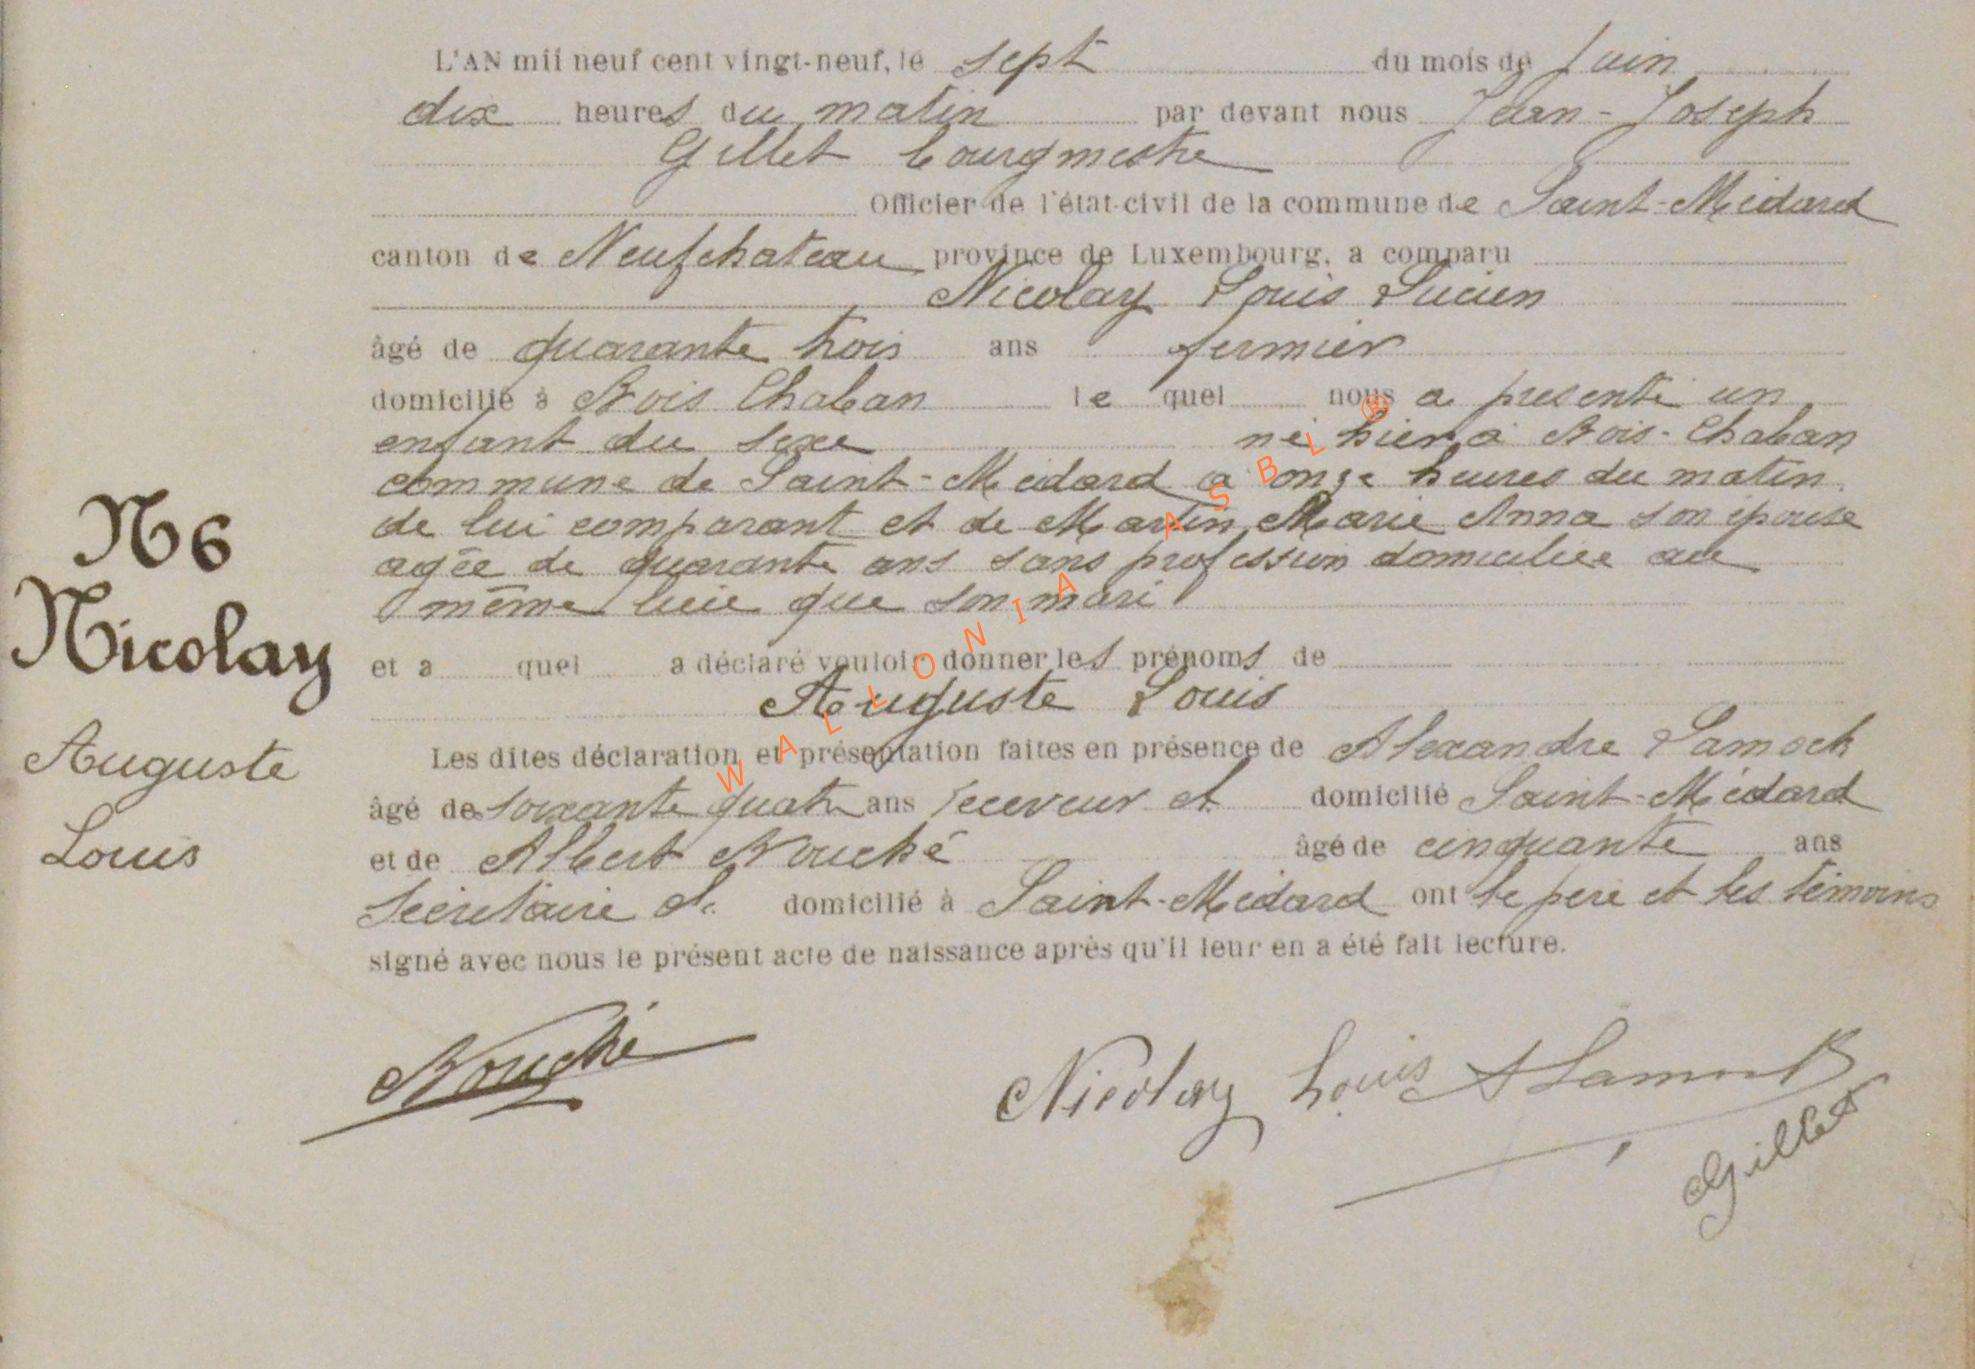 L'AN mil neuf cent vingt-neuf, le sept du mois de Juin
dix heures du matin par devant nous Jean-Joseph
Gillet bourgmestre
Officier de l'état-civil de la commune de Saint-Médard
canton de Neufchateau province de Luxembourg, a comparu
Nicolay Louis Lucien
âgé de quarante trois ans fermier
domicilié à Bois Chaban le quel nous a présenté un
enfant du sexe né hier à Bois-Chaban
commune de Saint-Médard à onze heures du matin
de lui comparant et de Martin Marie Anna son épouse
agée de quarante ans sans profession domiciliée au
même lieu que son mari
et a quel a déclaré vouloir donner les prénoms de
Auguste Louis
Les dites déclaration et présentation faites en présence de Alexandre Lamock
âgé de soixante quatre ans receveur et domicilié Saint-Médard
et de Albert Nouché âgé de cinquante ans
Secrétaire et domicilié à Saint-Médard ont le père et les témoins
signé avec nous le présent acte de naissance après qu'il leur en a été fait lecture.
N6
Nicolay
Auguste
Louis
Nouché
Nicolay Louis
Gillet
WALLONIA ASBL®